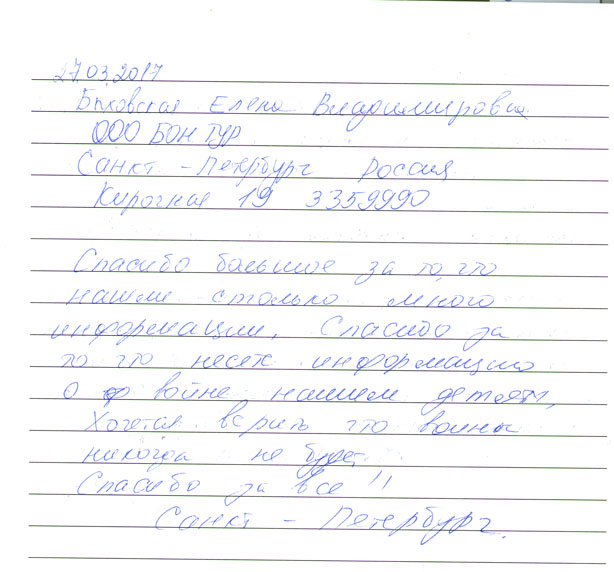 27.03.2017
Быковская Елена Владимировна
ООО БОН ТУР
Санкт - Петербург Россия
Кирочная 19 3359990
Спасибо большое за то, что
нашли столько много
информации. Спасибо за
то что несек информацию
о войне нашим детям,
Хочется верить что войны
никогда не будет.
Спасибо за все !!
Санкт - Петербург.